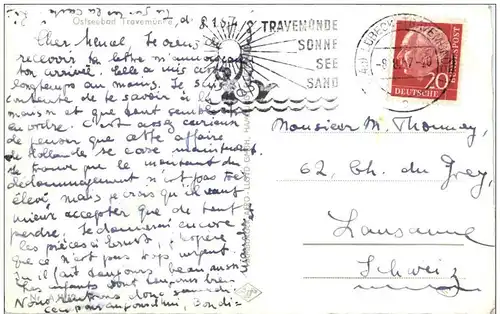 Ostseebad Travemünde, d. 8.10.57
Cher Marcel, Je viens de
recevoir ta lettre m'annonçant
ton arrivée. Elle a mis
longtemps au moins. Je suis
contente de te savoir à la
maison et que tout semble
en ordre. C'est assez curieux
de penser que cette affaire
de Hollande se case maintenant.
Je trouve que le montant du
dédommagement n'est pas très
élevé, mais je crois qu'il vaut
mieux accepter que de tout
perdre. Je donnerai encore
les pièces à Ernst, j'espère
que ce n'est pas trop urgent.
Ici il fait toujours beau aussi.
Les enfants sont toujours bien.
Nous rentrons donc samedi.
pour aujourd'hui, Bon di-
TRAVEMÜNDE
SONNE
SEE
SAND
LÜBECK-TRAVEMÜNDE
DEUTSCHE
BUNDESPOST
20
Monsieur M. Thonney
62, Ch. du Grey,
Lausanne
Schweiz